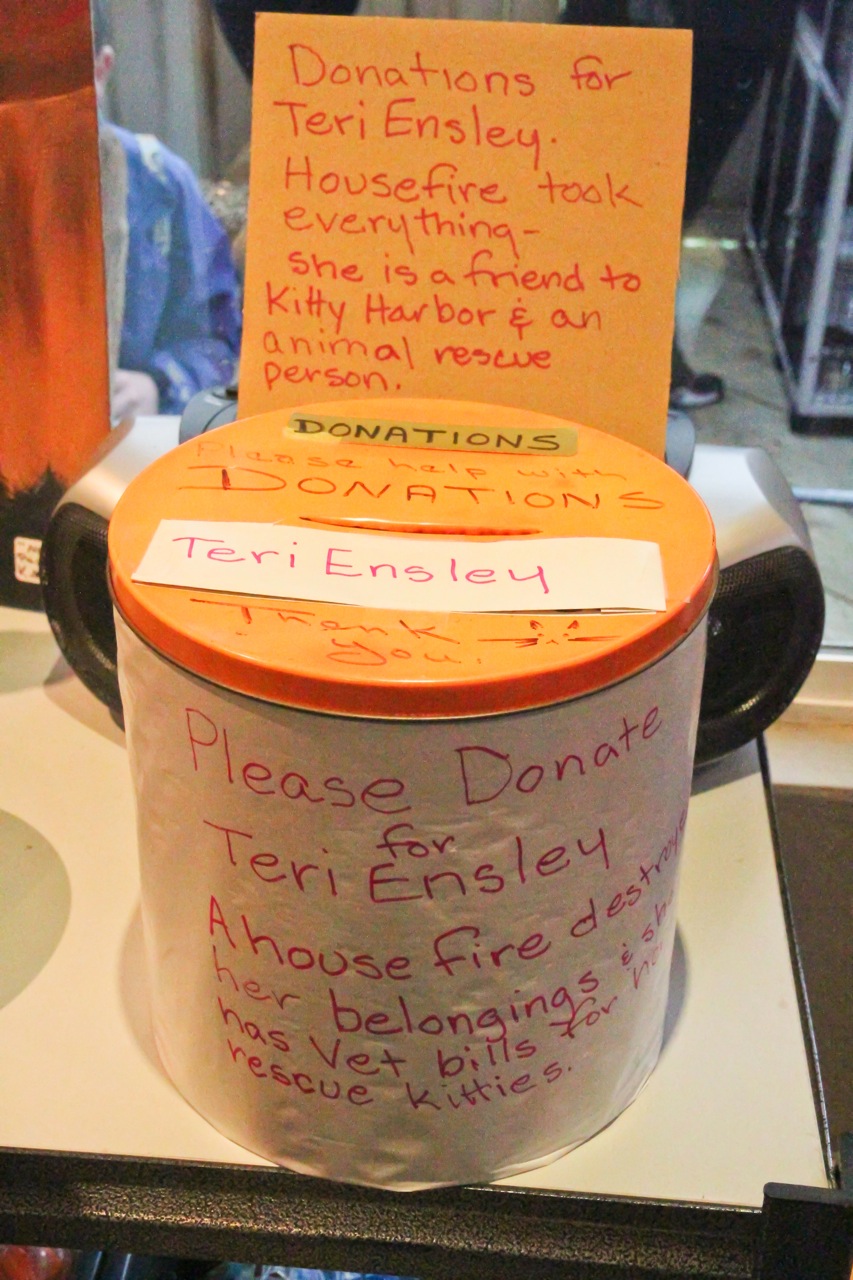 Donations for
Teri Ensley.
Housefire took
everything-
she is a friend to
Kitty Harbor & an
animal rescue
person.
DONATIONS
Please help with
DONATIONS
Teri Ensley
Thank
you.
Please Donate
for
Teri Ensley
A house fire
her belongings &
has Vet bills for
rescue kitties.